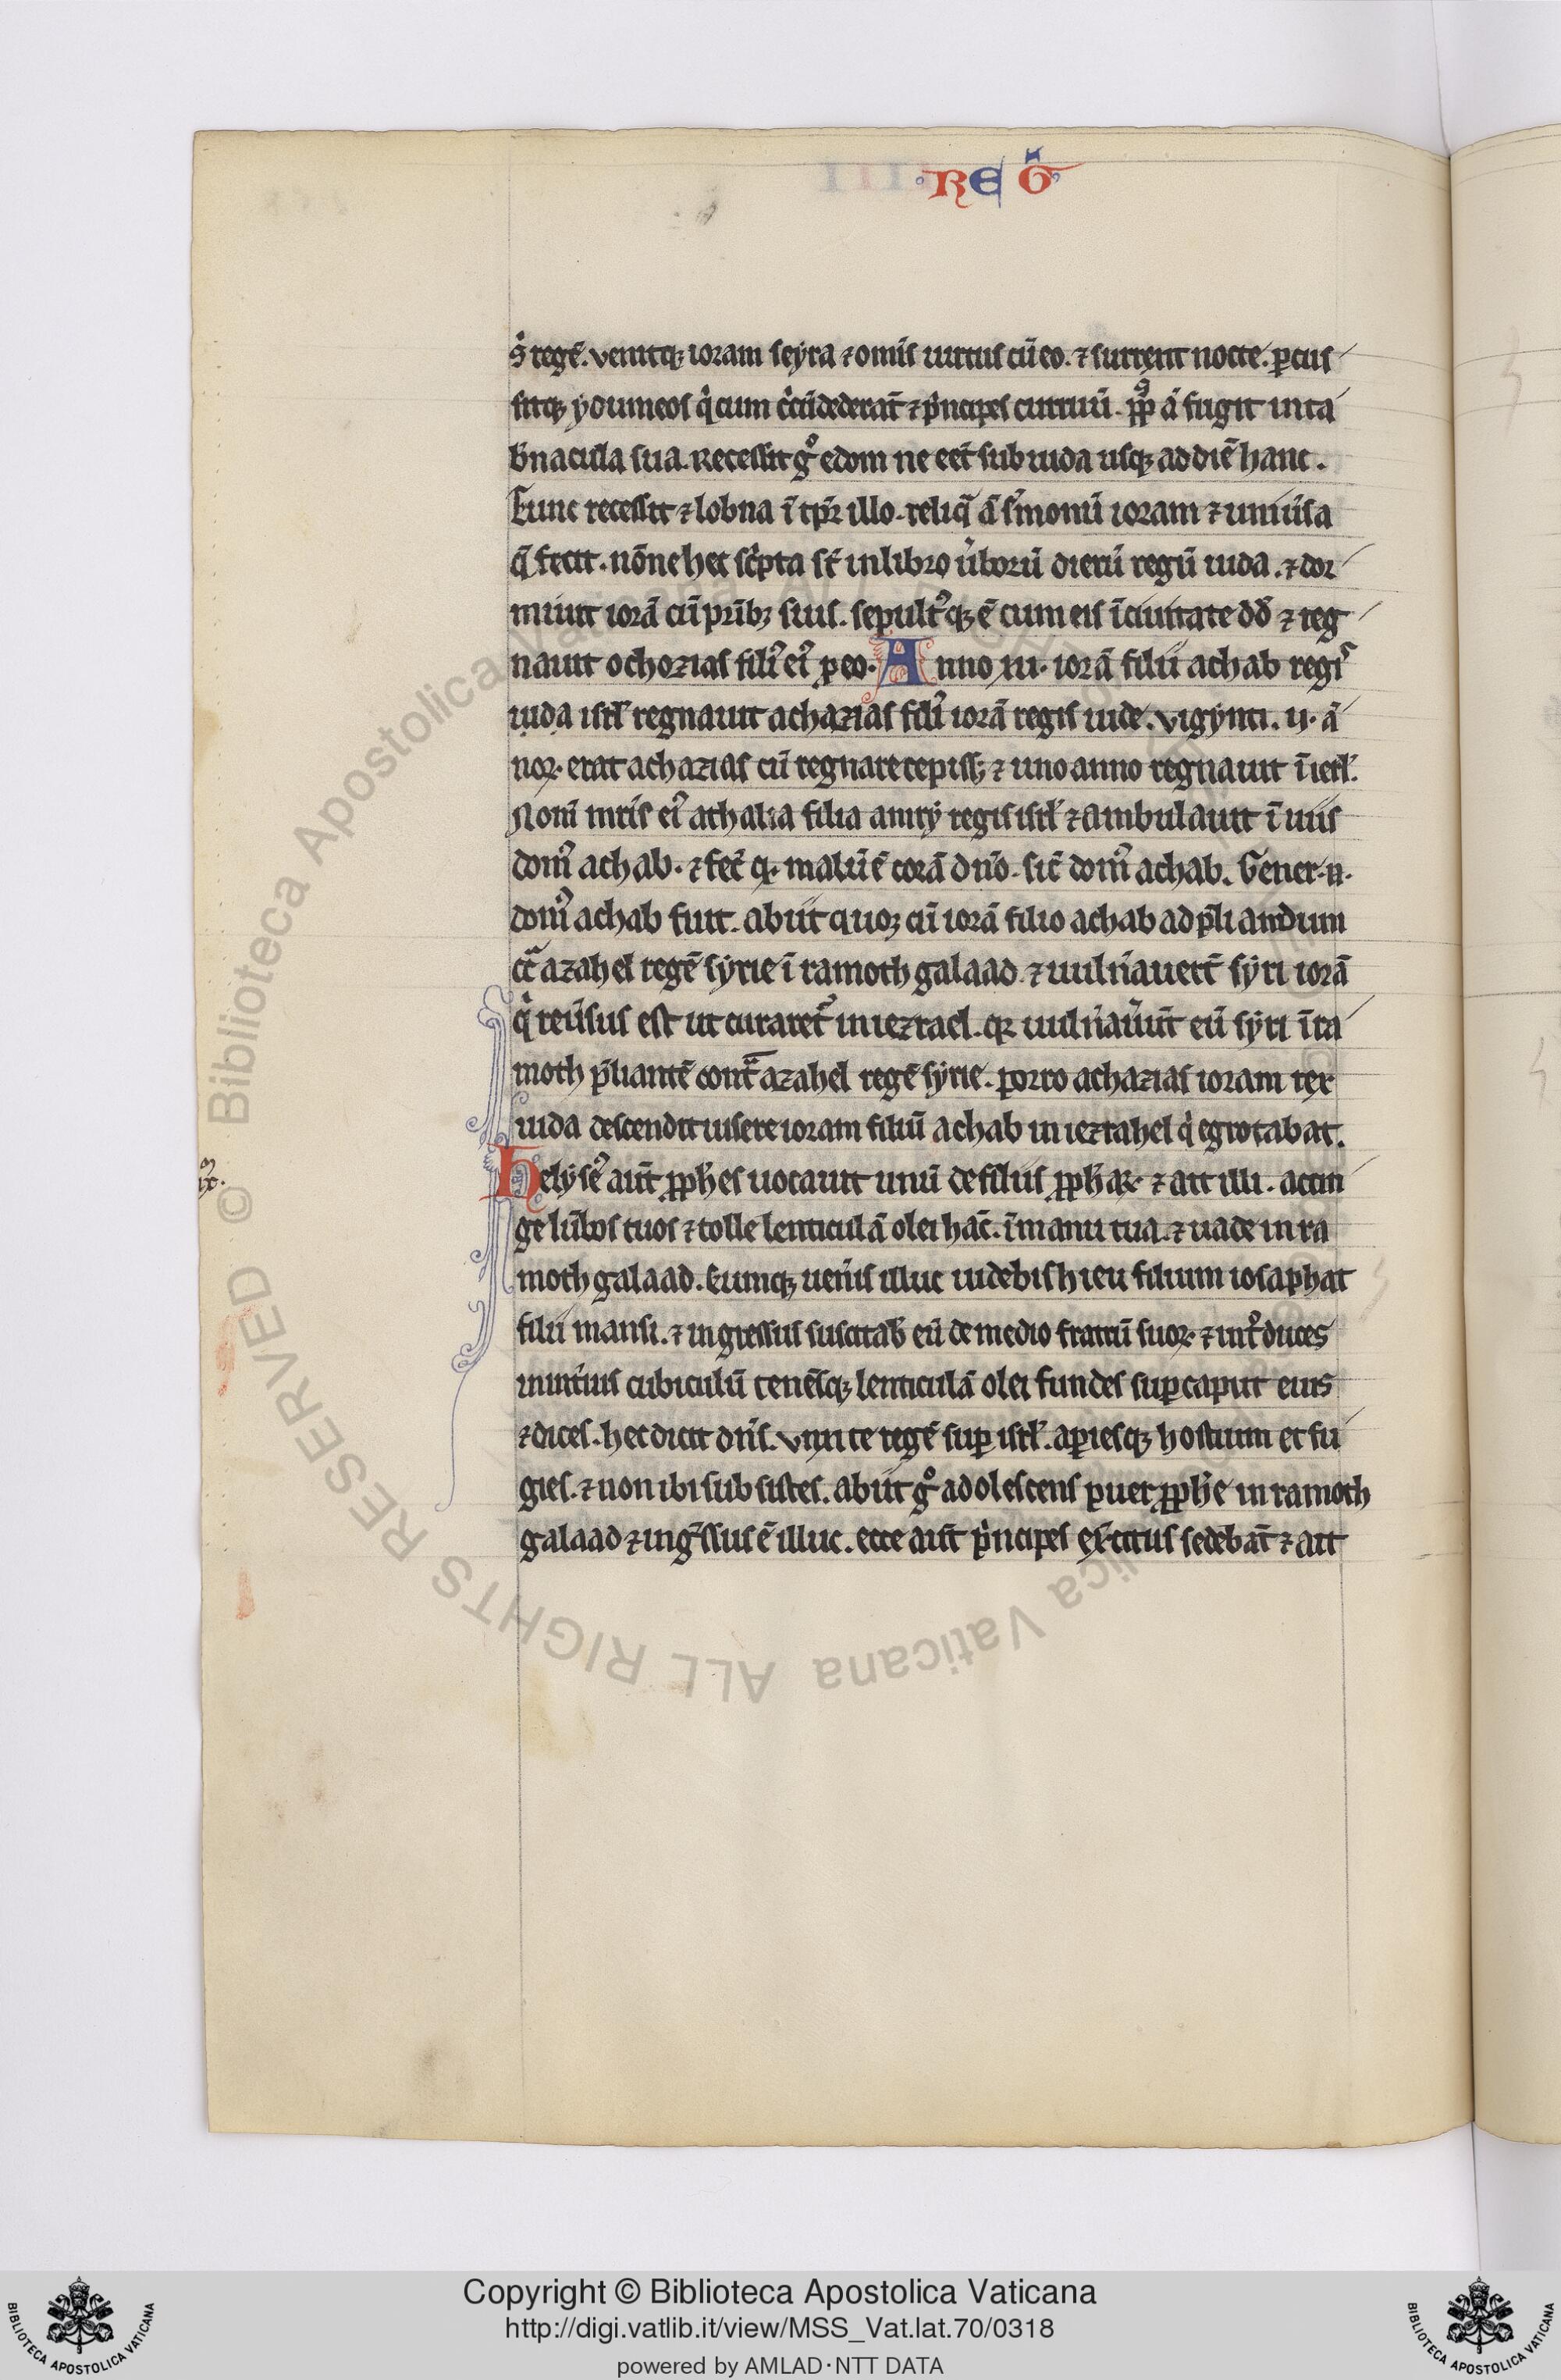 RE G̃
s̉ regē. venitq; ioram seyra ⁊ omĩs uirtus cū eo. ⁊ surrexit nocte. ꝑcus
sitq; ydumeos q̉ cum c̉cūdederãt ⁊ p̉ncipes curruū. ppl̃s ã fugit in ta
b̃nacula sua. Recessit gͦ edom ne eẽt sub iuda usq; ad diē hanc.
Tunc recessit ⁊ lobna ĩ tp̃r illo. reliq̃ ã s̃monū ioram ⁊ uniũsa
q̃ fecit. nõne hec sc̉pta st̃ in libro ũborū dierū regū iuda. ⁊ dor
miuit iorã cū prĩb; suis. sepultꝰq; ẽ cum eis ĩ ciuitate dd̃ ⁊ reg
nauit ochozias filiꝰ eiꝰ ꝓ eo. Anno xii. iorã filii achab regis
iuda isrl̃ regnauit achazias filiꝰ iorã regis iude. viginti. ii. ã
noꝝ. erat achazias cū regnare cepiss; ⁊ uno anno regnauit ĩ ierl̃.
Nom̃ mr̃is eiꝰ athalia filia amry regis isrl̃ ⁊ ambulauit ĩ uiis
domꝰ achab. ⁊ fec̃ q̃. malũ ẽ corã dño. sic̃ domꝰ achab. Gener. n.
domꝰ achab fuit. abiit quoq; cū iorã filio achab ad p̃liandum
cc̃ azahel regē syrie ĩ ramoth galaad. ⁊ uulñauert̃ syri iorã
q̉ reũsus est ut curaretᷣ in iezrael. qꝛ uulñauũt eū syri ĩ ra
moth p̃liantē cont̃ azahel regē syrie. porro achazias ioram rex
iuda descendit uisere ioram filiū achab in iezrahel q̉ egrotabat.
Helyseꝰ aūt ppl̃es uocauit unū de filiis ppl̃aꝝ. ⁊ ait illi. accin
ix.
ge lũbos tuos ⁊ tolle lenticulã olei hãc. ĩ manu tua. ⁊ uade in ra
moth galaad. Cumq; uen̉is illuc uidebis hieu filium iosaphat
filii mansi. ⁊ ingressus suscitab̃ eū de medio fratrū suoꝝ. ⁊ int̉duces
in int̉ius cubiculū tenẽsq; lenticulã olei fundes suꝑ caput eius
⁊ dices. hec dicit dñs. vnxi te regē suꝑ isrl̃. aꝑiesq; hostium et fu
gies. ⁊ non ibi subsistes. abiit gͦ adolescens puer ppl̃e in ramoth
galaad ⁊ ing̃ssus ẽ illuc. ecce aūt p̉ncipes ex̉citus sedebãt ⁊ ait
© Biblioteca Apostolica Vaticana ALL RIGHTS RESERVED
Copyright © Biblioteca Apostolica Vaticana
http://digi.vatlib.it/view/MSS_Vat.lat.70/0318
powered by AMLAD·NTT DATA
BIBLIOTECA APOSTOLICA VATICANA
BIBLIOTECA APOSTOLICA VATICANA